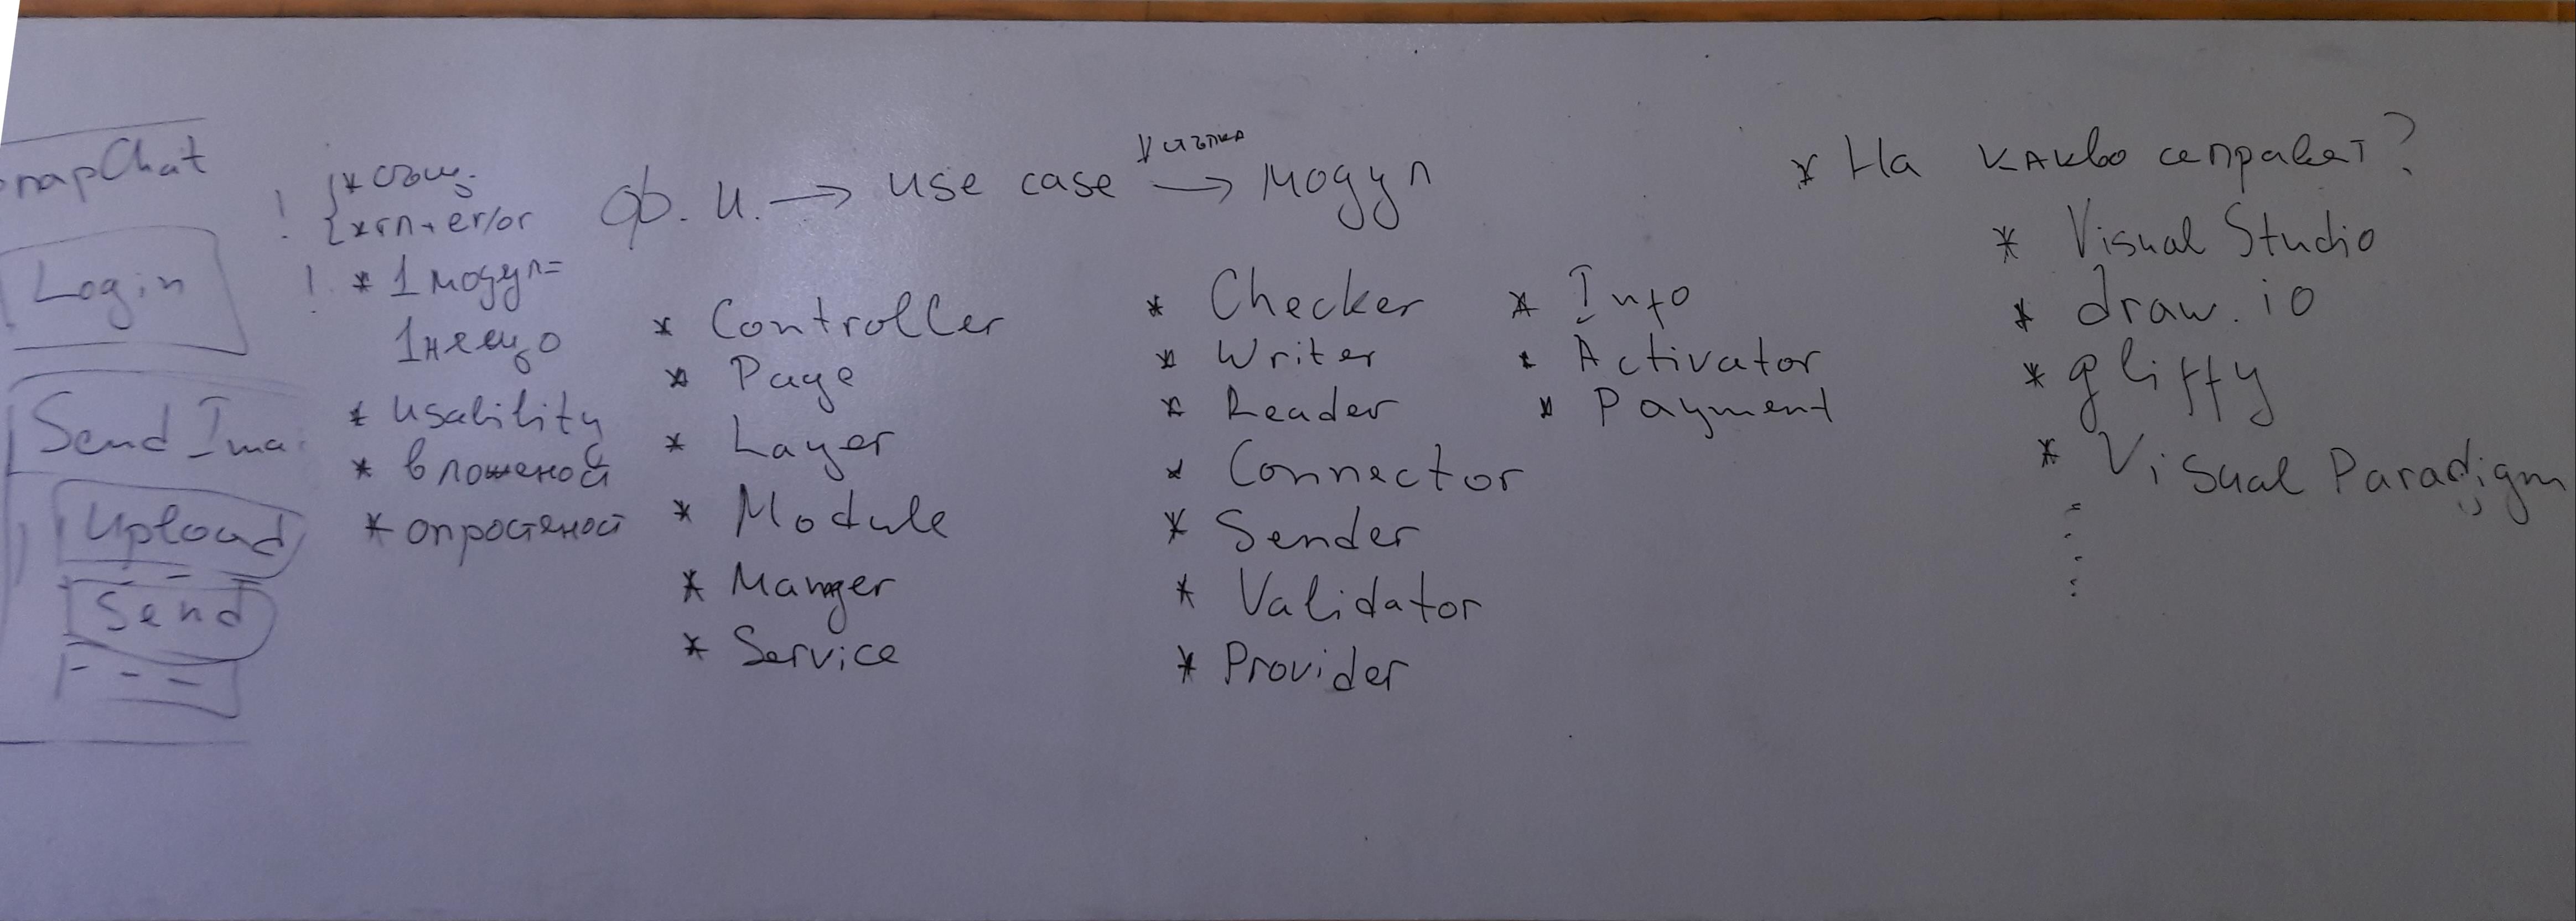 napChat
Login
Send Ima
Upload
Send
- - -
! * същ.
* гл. + error
! * 1 модул =
1 нещо
* usability
* вложеной
* опростяной
ф. и. → use case → модул
* Controller
* Page
* Layer
* Module
* Manger
* Service
* Checker
* Writer
* Reader
* Connector
* Sender
* Validator
* Provider
* Info
* Activator
* Payment
* На какво се прават?
* Visual Studio
* draw.io
* gliffy
* Visual Paradigm